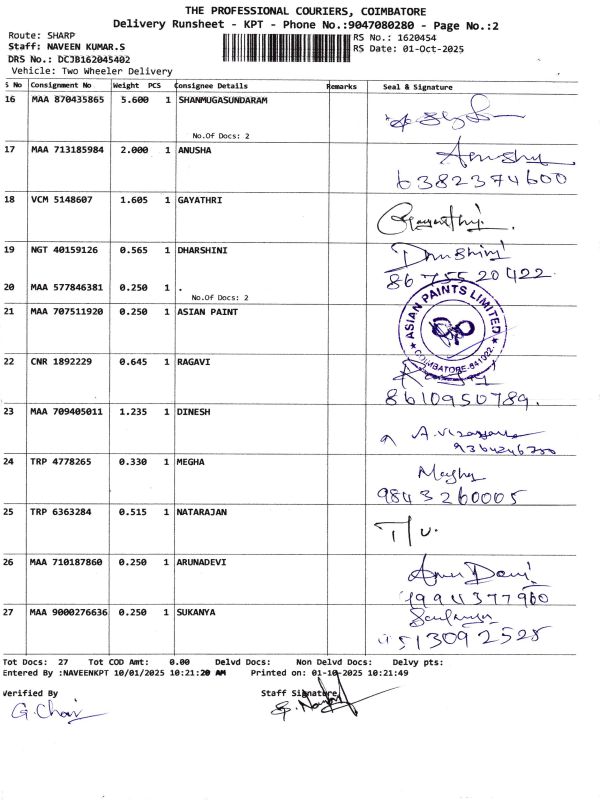 THE PROFESSIONAL COURIERS, COIMBATORE
Delivery Runsheet - KPT - Phone No.:9047080280 - Page No.:2
Route: SHARP
RS No.: 1620454
Staff: NAVEEN KUMAR.S
RS Date: 01-Oct-2025
DRS No.: DCJB162045402
Vehicle: Two Wheeler Delivery
S No Consignment No Weight PCS Consignee Details Remarks Seal & Signature
16 MAA 870435865 5.600 1 SHANMUGASUNDARAM
No.Of Docs: 2
17 MAA 713185984 2.000 1 ANUSHA Anusha
6382374600
18 VCM 5148607 1.605 1 GAYATHRI Gayathri
19 NGT 40159126 0.565 1 DHARSHINI Dharshini
86 755 20422
20 MAA 577846381 0.250 1 .
No.Of Docs: 2
21 MAA 707511920 0.250 1 ASIAN PAINT
ASIAN PAINTS LIMITED
COIMBATORE-641022
22 CNR 1892229 0.645 1 RAGAVI
8610950789.
23 MAA 709405011 1.235 1 DINESH
24 TRP 4778265 0.330 1 MEGHA Megha
9843260005
25 TRP 6363284 0.515 1 NATARAJAN
26 MAA 710187860 0.250 1 ARUNADEVI Arun Devi
27 MAA 9000276636 0.250 1 SUKANYA Sukanya
Tot Docs: 27 Tot COD Amt: 0.00 Delvd Docs: Non Delvd Docs: Delvy pts:
Entered By :NAVEENKPT 10/01/2025 10:21:20 AM Printed on: 01-10-2025 10:21:49
Verified By Staff Signature